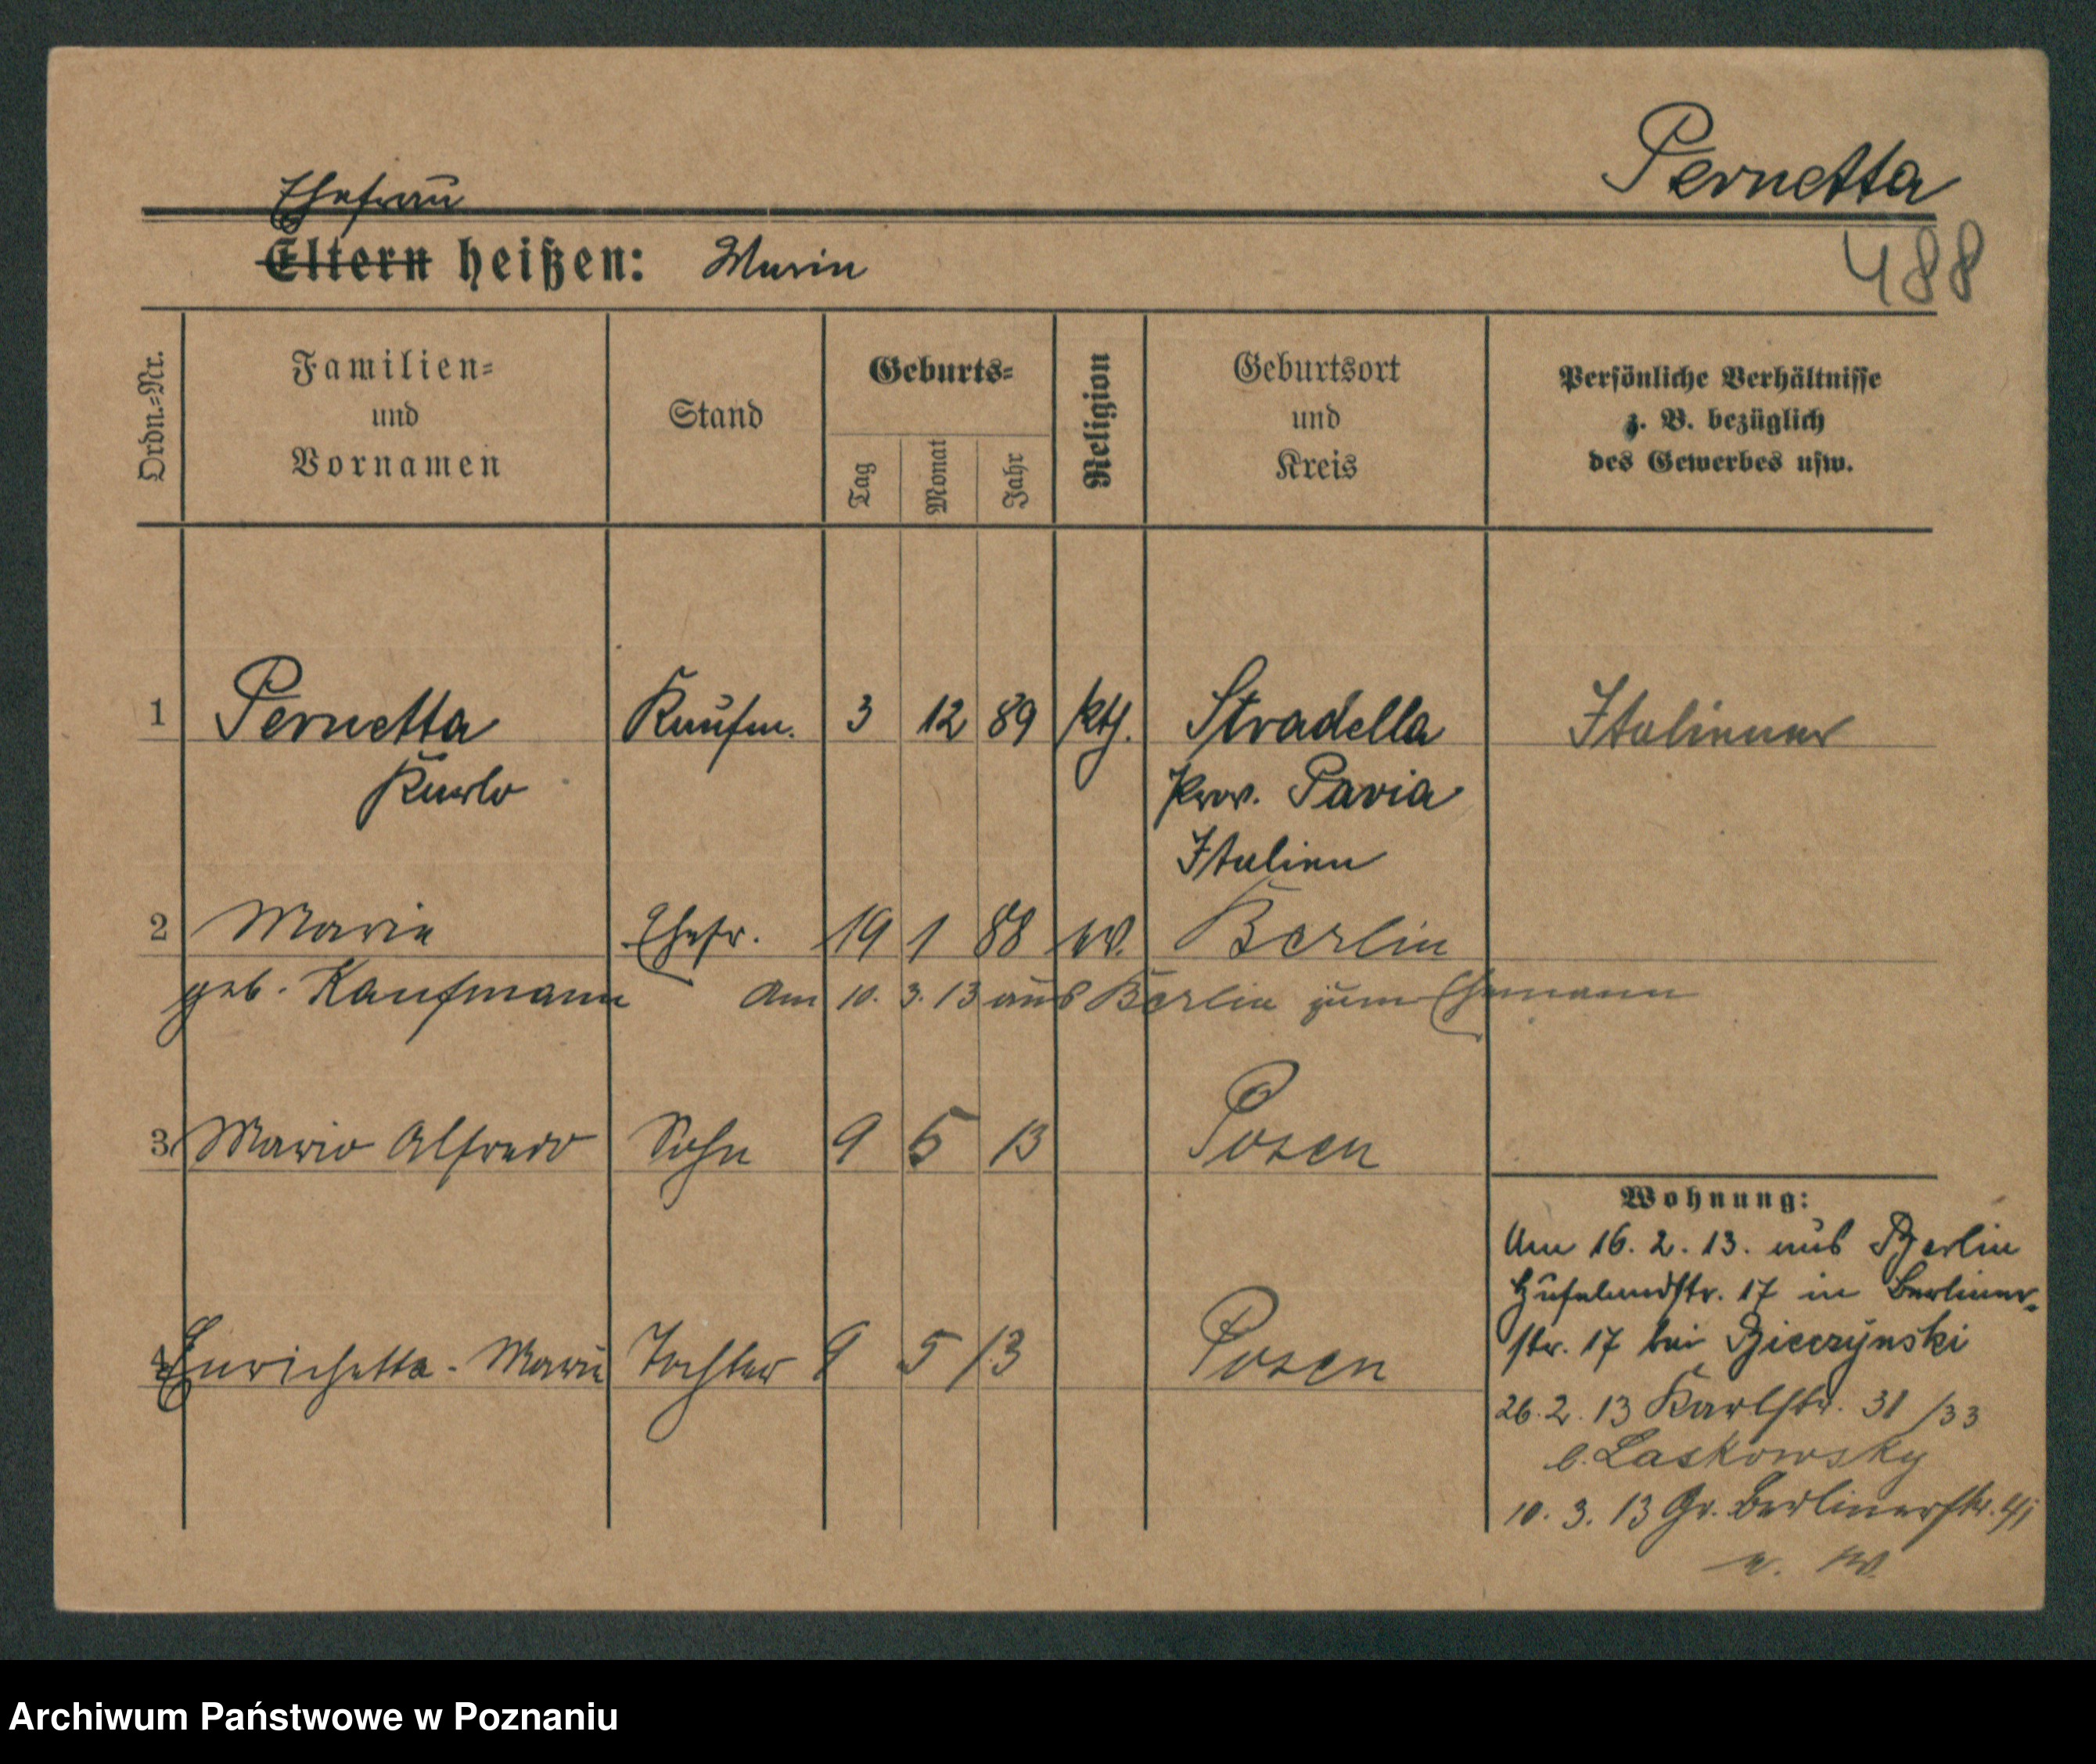 Pernetta
Ehefrau
Eltern heißen: Marie
488
Ordn.-Nr.
Familien-
und
Vornamen
Stand
Geburts-
Tag
Monat
Jahr
Religion
Geburtsort
und
Kreis
Persönliche Verhältnisse
z. B. bezüglich
des Gewerbes usw.
1 Pernetta Kaufm. 3 12 89 kth. Stradella Italiener
Karlo Prov. Pavia
Italien
2 Marie Ehefr. 19 1 88 ev. Berlin
geb. Kaufmann Am 10. 3. 13 aus Berlin zum Ehemann
3 Mario Alfredo Sohn 9 5 13 Posen
Wohnung:
Am 16. 2. 13. aus Berlin
Hufelandstr. 17 in Berliner-
str. 17 bei Bieczynski
4 Enrichetta - Maria Tochter 9 5 13 Posen
26. 2. 13 Karlstr. 31/33
b. Laskowsky
10. 3. 13 Gr. Berlinerstr.
Archiwum Państwowe w Poznaniu